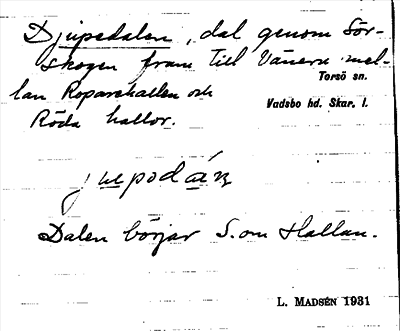 Djupedalen, dal genom Sör-
skogen fram till Vänern mel-
Torsö sn.
lan Roparehallen och
Vadsbo hd. Skar. l.
Röda hallor.
Dalen börjar S. om Hallan.
L. MADSÉN 1931